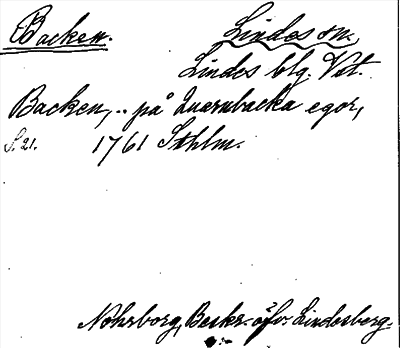 Backen. Lindes sn.
Lindes blg. Vstl.
Backen, .. på Quarnbacka egor,
S. 21. 1761 Sthlm.
Nohrborg, Beskr. öfv. Lindesberg.